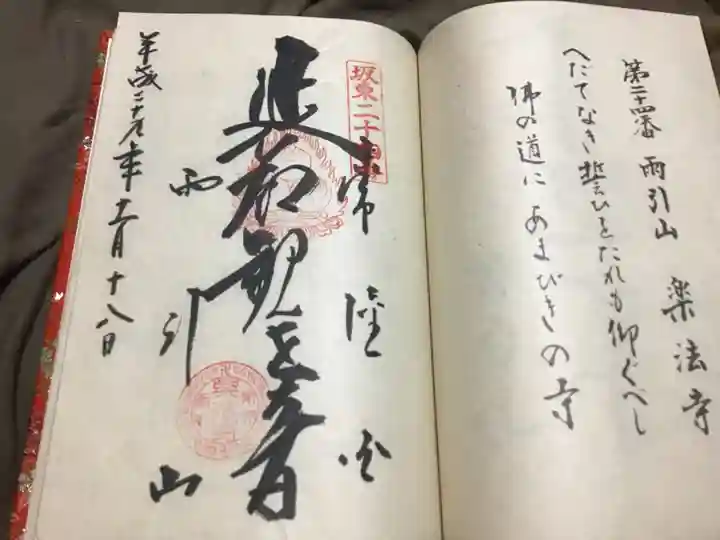 第二十四番 雨引山 楽法寺
へたてなき誓ひをたれも仰ぐべし
佛の道に あまびきの寺
坂東二十四番
常陸国
延命観世音
雨引山
平成二十 年十一月十八日